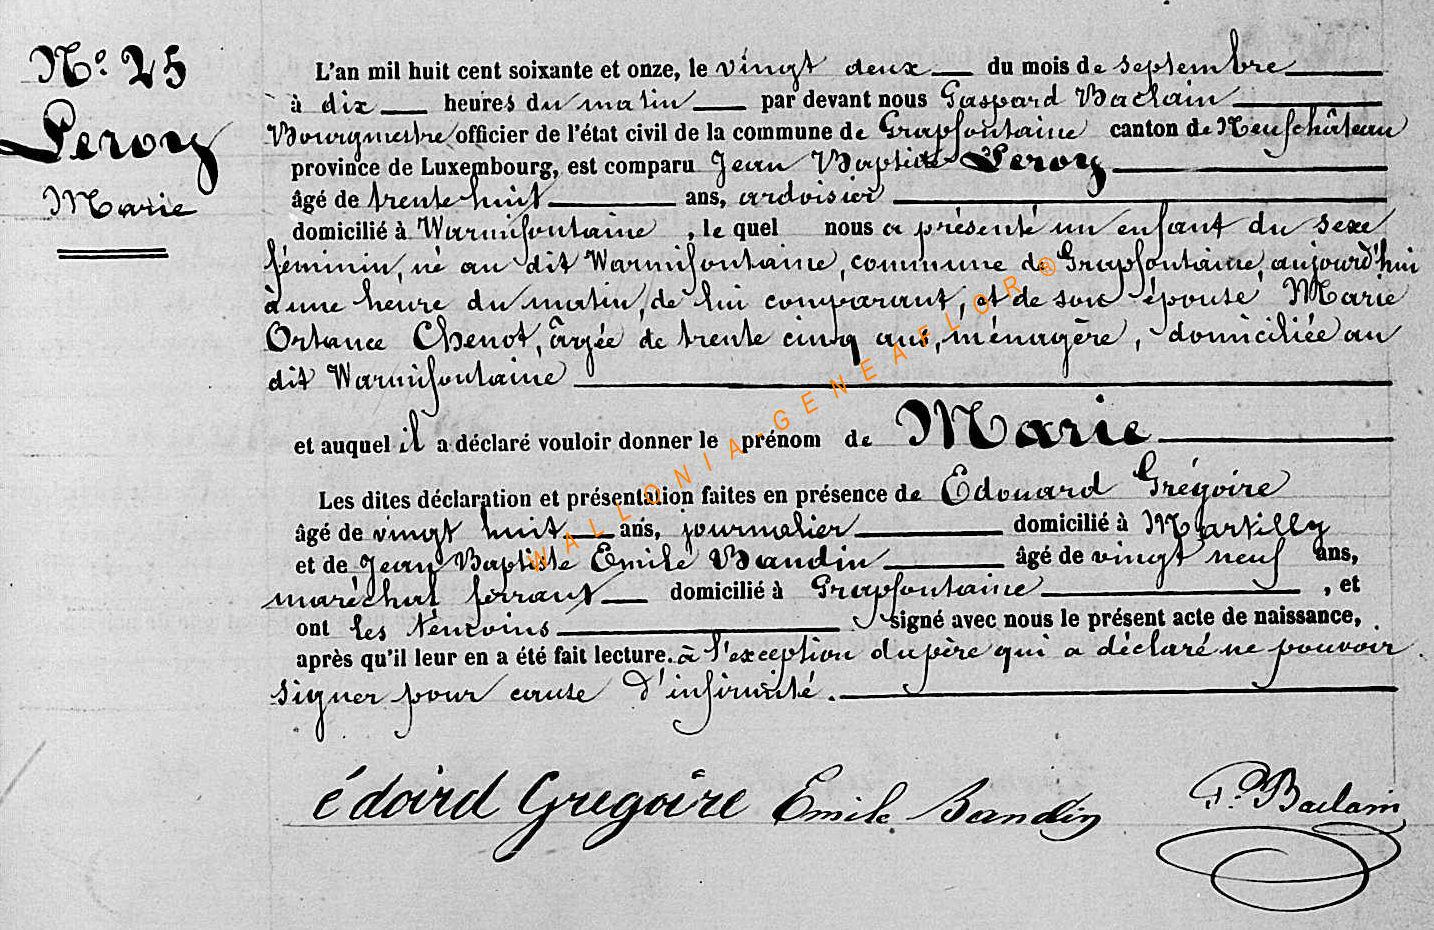 N.º 25
Leroy
Marie
L'an mil huit cent soixante et onze, le vingt deux du mois de septembre
à dix heures du matin par devant nous Gaspard Baclain
Bourgmestre officier de l'état civil de la commune de Grapfontaine canton de Neufchâteau
province de Luxembourg, est comparu Jean Baptiste Leroy
âgé de trente huit ans, ardoisier
domicilié à Warmifontaine, le quel nous a présenté un enfant du sexe
féminin, né au dit Warmifontaine, commune de Grapfontaine, aujourd'hui
à une heure du matin, de lui comparant, et de son épouse Marie
Ortance Chenot, âgée de trente cinq ans, ménagère, domiciliée au
dit Warmifontaine
et auquel il a déclaré vouloir donner le prénom de Marie
Les dites déclaration et présentation faites en présence de Edouard Grégoire
âgé de vingt huit ans, journalier domicilié à Martilly
et de Jean Baptiste Emile Baudin âgé de vingt neuf ans,
maréchal ferrant domicilié à Grapfontaine, et
ont les témoins signé avec nous le présent acte de naissance,
après qu'il leur en a été fait lecture. à l'exception du père qui a déclaré ne pouvoir
signer pour cause d'infirmité.
édoird Gregoire Emile Baudin G. Baclain
WALLONIA-GENEAFLOR ®